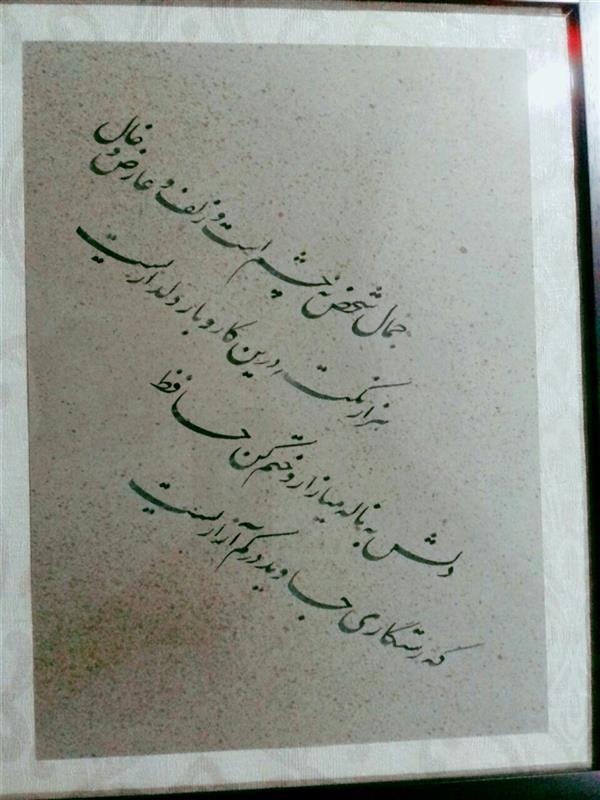 جمال شخص نه چشم است و زلف و عارض و خال
هزار نکته درین کار و بار دلداریست
دلش به ناله میازار و ختم کن حافظ
که رستگاری جاوید در کم آزاریست